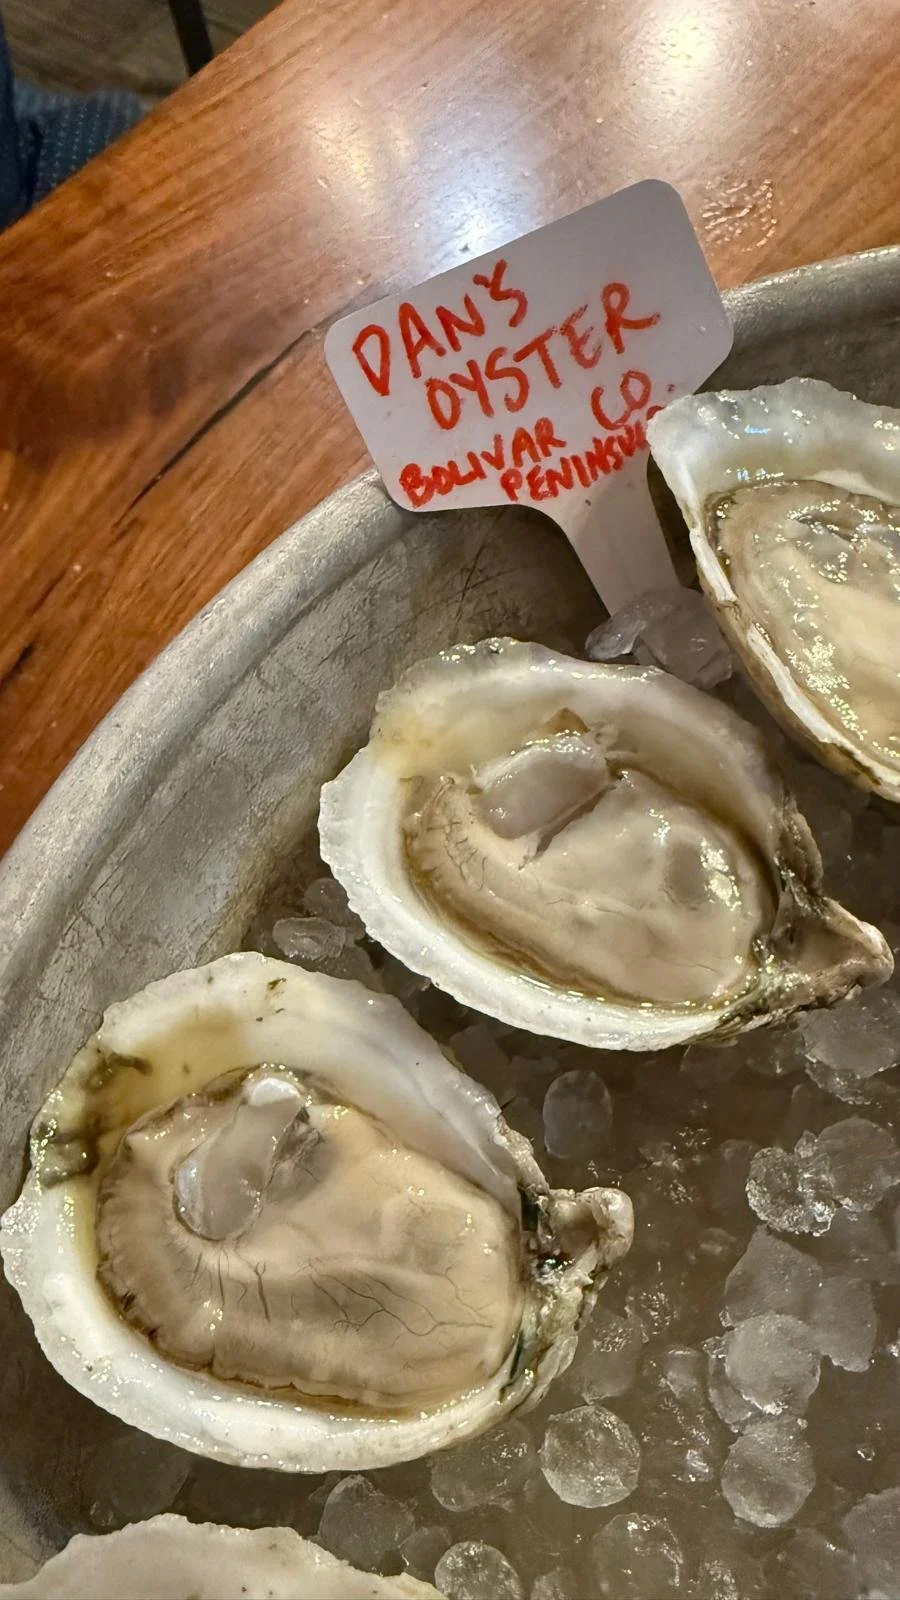 DAN'S
OYSTER
CO.
BOLIVAR
PENINSULA